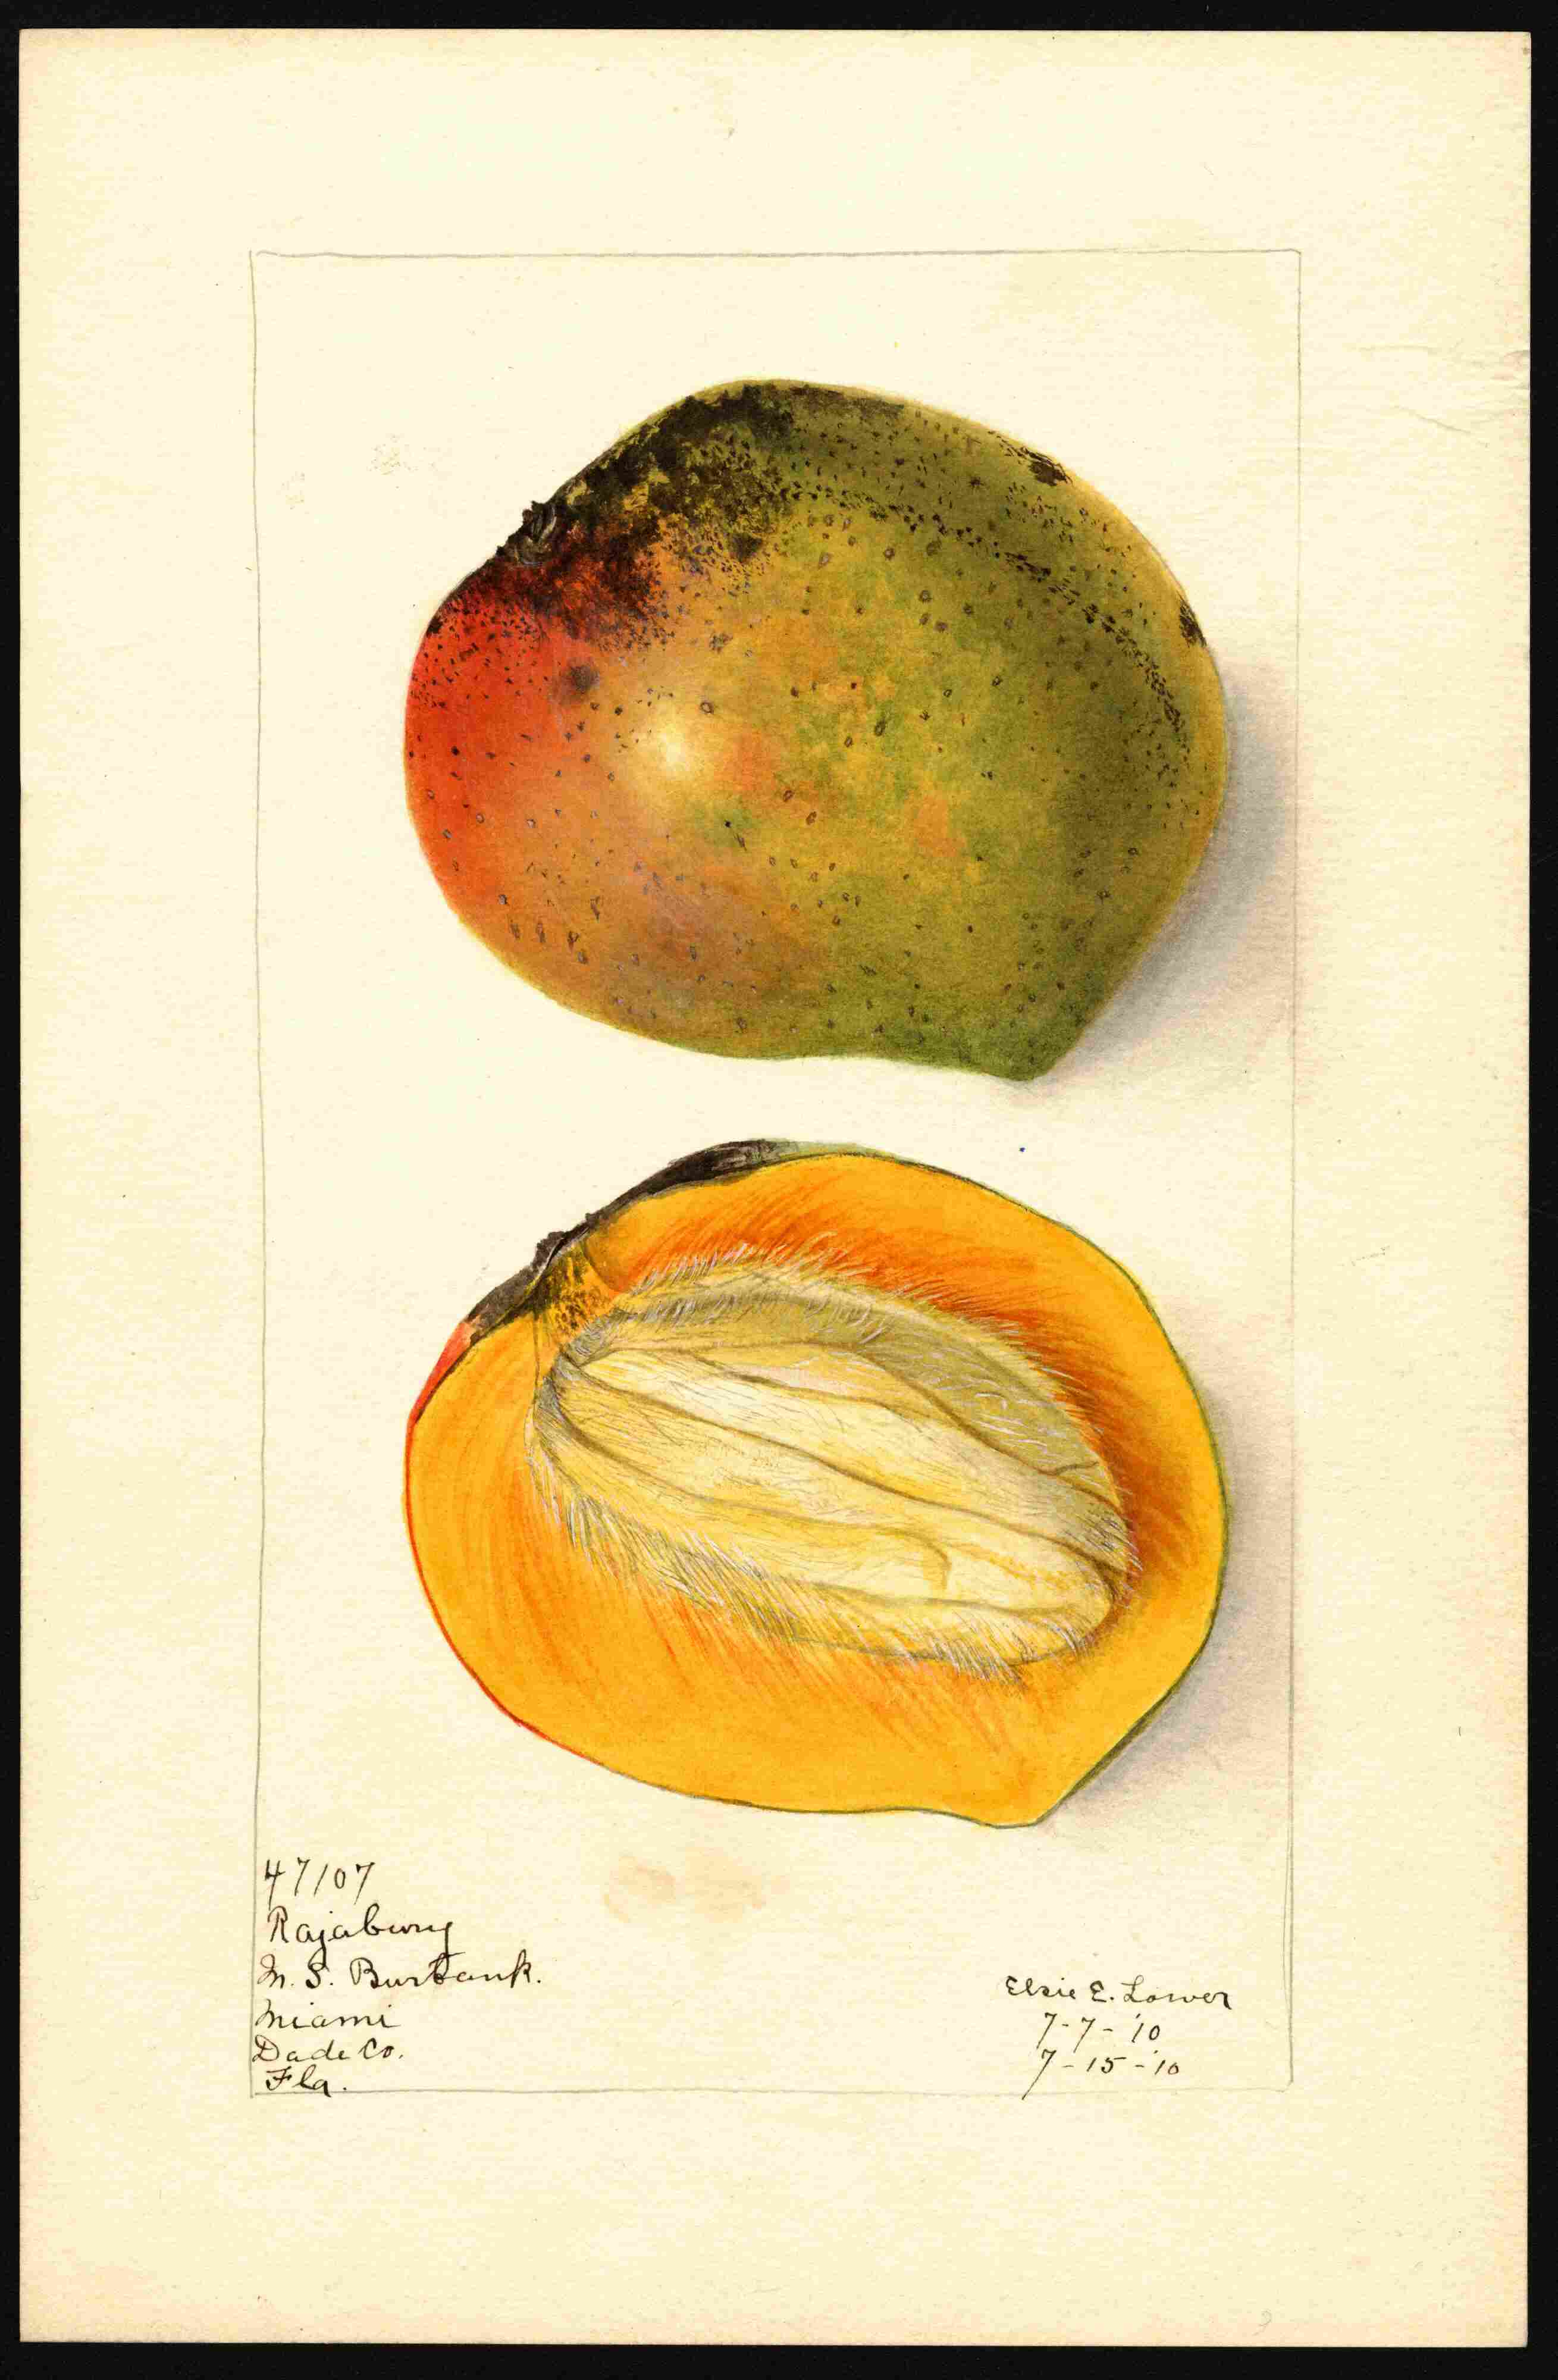 47107
Rajabury
M. S. Burbank.
Miami
Dade Co.
Fla.
Elsie E. Lower
7-7-'10
7-15-'10